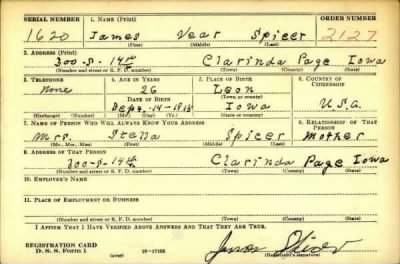 SERIAL NUMBER 1. NAME (Print) ORDER NUMBER (Print)
1620 James Vear Spicer 2127
(First) (Middle) (Last)
2. ADDRESS (Print)
300-S-14th Clarinda Page Iowa
(Number and street or R. F. D. number) (Town) (County) (State)
3. TELEPHONE 4. AGE IN YEARS 5. PLACE OF BIRTH 6. COUNTRY OF CITIZENSHIP
None 26 Leon
DATE OF BIRTH (Town or county)
Iowa U.S.A.
(Exchange) (Number) (Mo.) (Day) (Yr.) (State or country)
7. NAME OF PERSON WHO WILL ALWAYS KNOW YOUR ADDRESS 8. RELATIONSHIP OF THAT PERSON
Mrs. Stella Spicer Mother
(Mr., Mrs., Miss) (First) (Middle) (Last)
9. ADDRESS OF THAT PERSON
300-S-14th Clarinda Page Iowa
(Number and street or R. F. D. number) (Town) (County) (State)
10. EMPLOYER'S NAME
11. PLACE OF EMPLOYMENT OR BUSINESS
(Number and street or R. F. D. number) (Town) (County) (State)
I AFFIRM THAT I HAVE VERIFIED ABOVE ANSWERS AND THAT THEY ARE TRUE.
REGISTRATION CARD
D. S. S. Form 1 (over) (Registrant's signature)